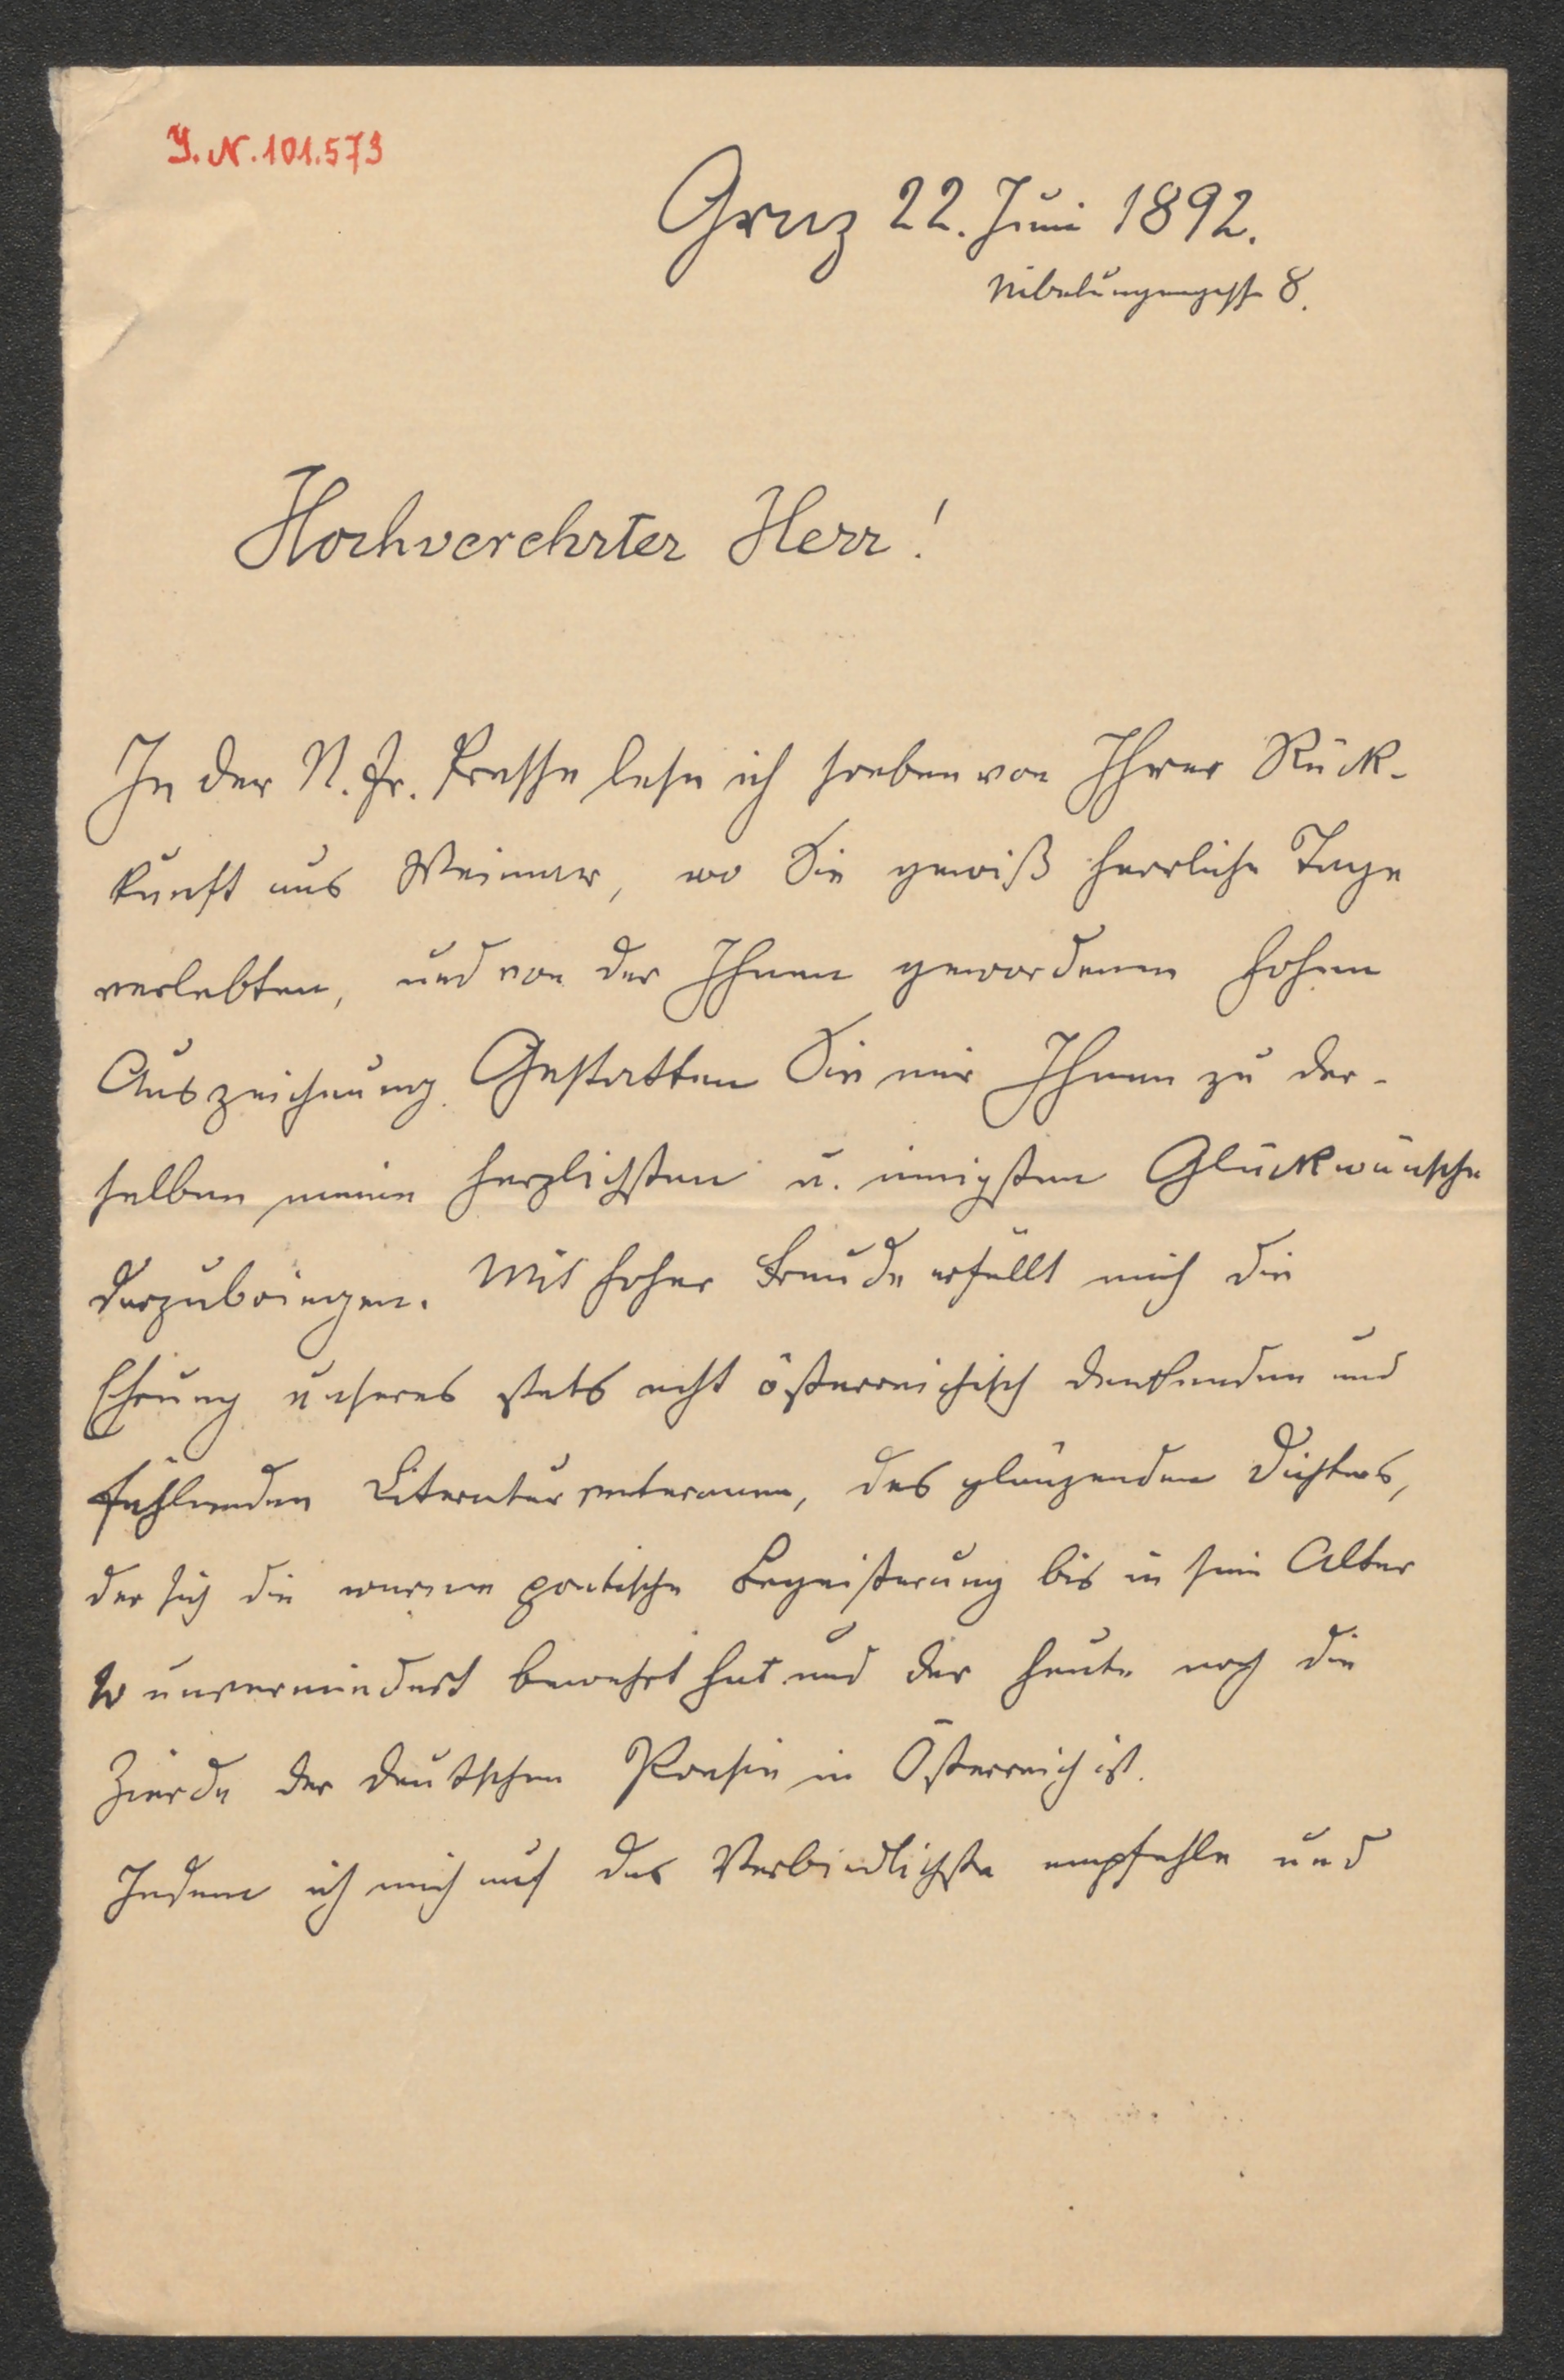 J. N. 101.573
Graz 22. Juni 1892.
Nibelungengasse 8.
Hochverehrter Herr!
In der N. Fr. Presse lese ich soeben von Ihrer Rück-
kunft aus Weimar, wo Sie gewiß herrliche Tage
verlebten, und von der Ihnen gewordenen hohen
Auszeichnung. Gestatten Sie mir Ihnen zu der-
selben meine herzlichsten u. innigsten Glückwünsche
darzubringen. Mit hoher Freude erfüllt mich die
Ehrung unseres stets echt österreichisch denkenden und
fühlenden Literaturveteranen, des glänzenden Dichters,
der sich die warme poetische Begeisterung bis in sein Alter
so unvermindert bewahrt hat und der heute noch die
Zierde der deutschen Poesie in Österreich ist.
Indem ich mich auf das Verbindlichste empfehle und